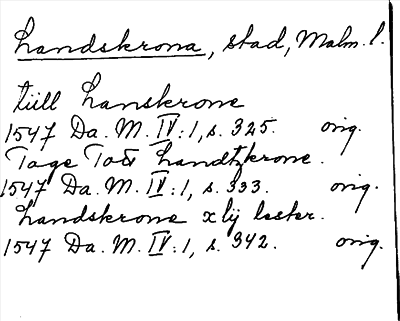 Landskrona, stad, Malm. l.
tiill Lanskrone
1547 Da. M. IV:1, s. 325. orig.
Tage Tott Landtzkrone.
1547 Da. M. IV:1, s. 333. orig.
Landskrone xlij lester.
1547 Da. M. IV:1, s. 342. orig.